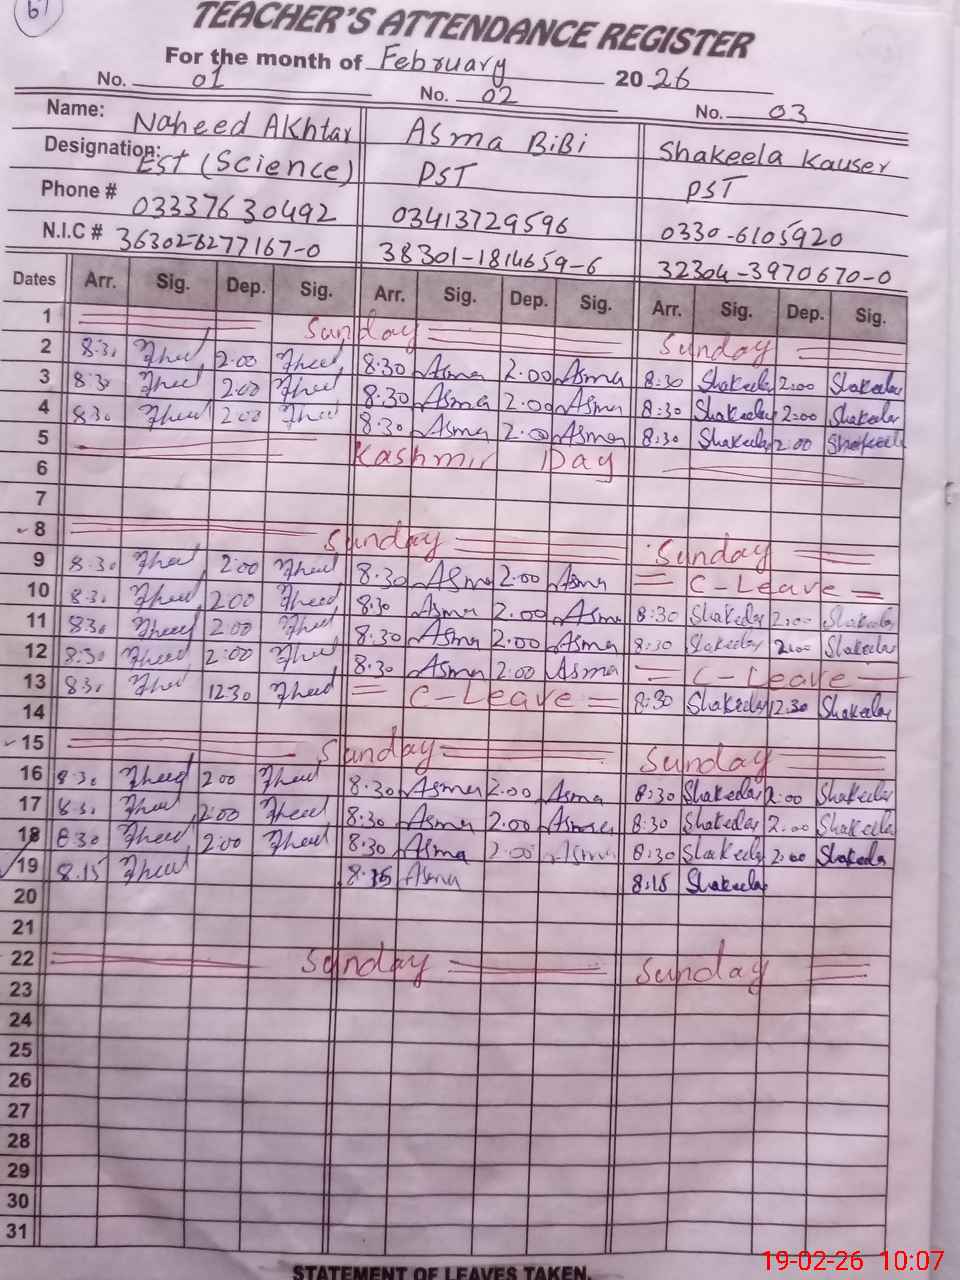 61
TEACHER'S ATTENDANCE REGISTER
For the month of February 2026
No. 01 No. 02 No. 03
Name: Naheed Akhtar Asma BiBi Shakeela Kauser
Designation: Est (Science) PST PST
Phone # 03337630492 03413729596 0330-6105920
N.I.C # 36302-6277167-0 38301-1814659-6 32304-3970670-0
Dates Arr. Sig. Dep. Sig. Arr. Sig. Dep. Sig. Arr. Sig. Dep. Sig.
1 Sunday Sunday
2 8.30 2.00 8.30 Asma 2.00 Asma 8:30 Shakeela 2:00 Shakeela
3 8.30 2.00 8.30 Asma 2.00 Asma 8:30 Shakeela 2:00 Shakeela
4 8.30 2.00 8.30 Asma 2.00 Asma 8:30 Shakeela 2:00 Shakeela
5 Kashmir Day
6
7
8 Sunday Sunday
9 8.30 2:00 8.30 Asma 2.00 Asma C-Leave
10 8.30 2.00 8.30 Asma 2.00 Asma 8:30 Shakeela 2:00 Shakeela
11 8.30 2.00 8.30 Asma 2.00 Asma 8:30 Shakeela 2:00 Shakeela
12 8.30 2:00 8.30 Asma 2.00 Asma C-Leave
13 8.30 12.30 C-Leave 8:30 Shakeela 12.30 Shakeela
14
15 Sunday Sunday
16 8.30 2.00 8.30 Asma 2.00 Asma 8:30 Shakeela 2:00 Shakeela
17 8.30 2:00 8.30 Asma 2.00 Asma 8:30 Shakeela 2:00 Shakeela
18 8.30 2:00 8.30 Asma 2.00 Asma 8:30 Shakeela 2:00 Shakeela
19 8.15 8.15 Asma 8:15 Shakeela
20
21
22 Sunday Sunday
23
24
25
26
27
28
29
30
31
STATEMENT OF LEAVES TAKEN.
19-02-26 10:07